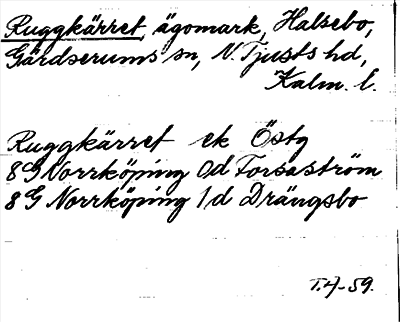 Ruggkärret, ägomark, Halsebo,
Gärdserums sn, N. Tjusts hd,
Kalm. l.
Ruggkärret ek Östg
8G Norrköping 0d Forsaström
8G Norrköping 1d Drängsbo
T.4-59.